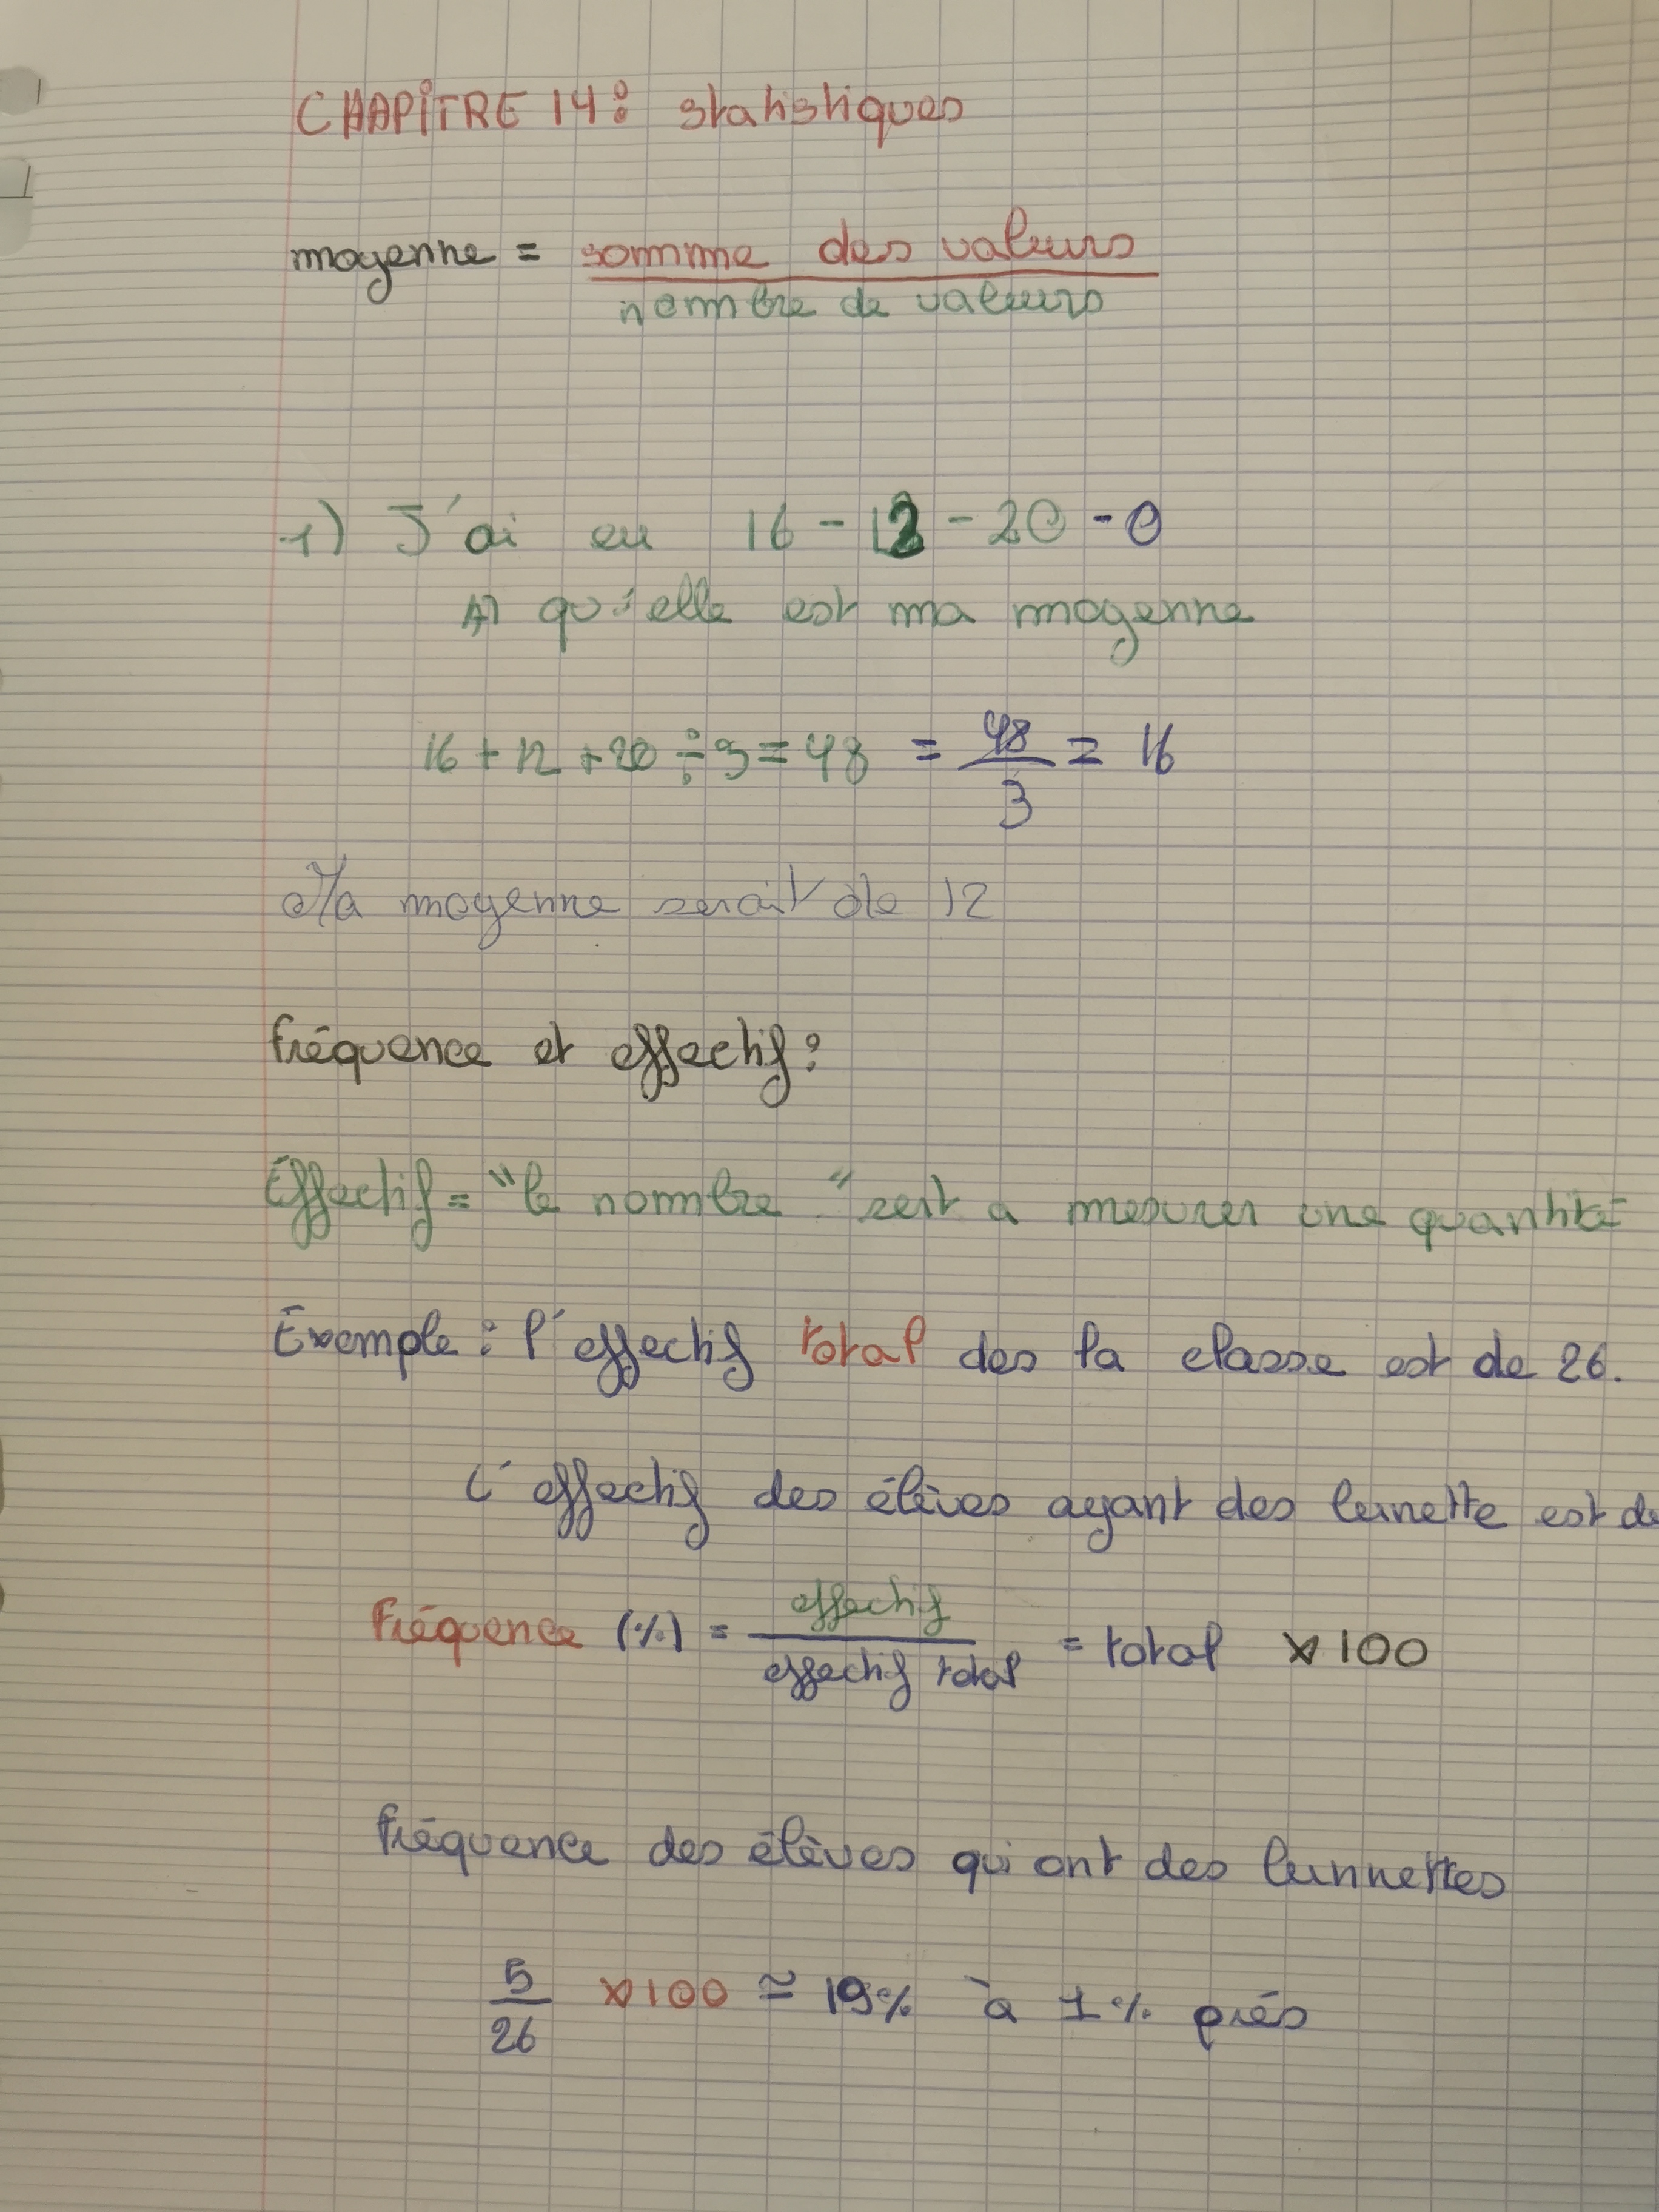 CHAPITRE 14 : statistiques
moyenne = somme des valeurs
nombre de valeurs
1) J'ai eu 16 - 12 - 20 - 0
A) qu'elle est ma moyenne
16 + 12 + 20 ÷ 3 = 48 = 48/3 = 16
Ma moyenne serait de 12
fréquence et effectif :
Éffectif = "le nombre" sert a mesurer une quantité
Éxemple : l'effectif total des la classe est de 26.
L'effectif des élèves ayant des lunette est de
Fréquence (%) = effectif / effectif total = total × 100
fréquence des élèves qui ont des lunnettes
5/26 × 100 ≃ 19% à 1% prés